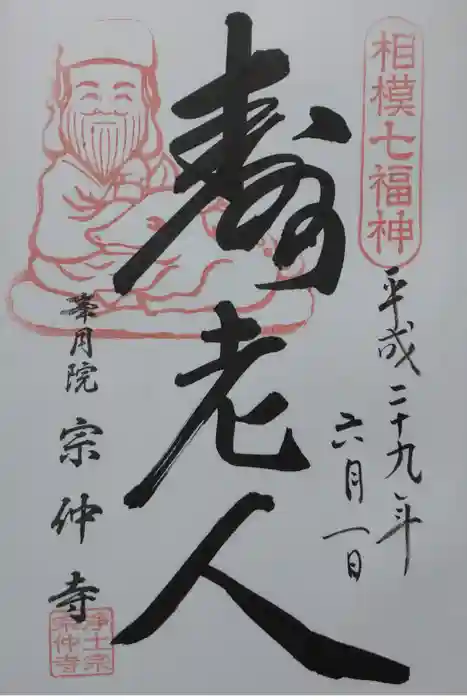 相模七福神
平成二十九年
六月一日
寿老人
華月院 宗仲寺
浄土宗
宗仲寺